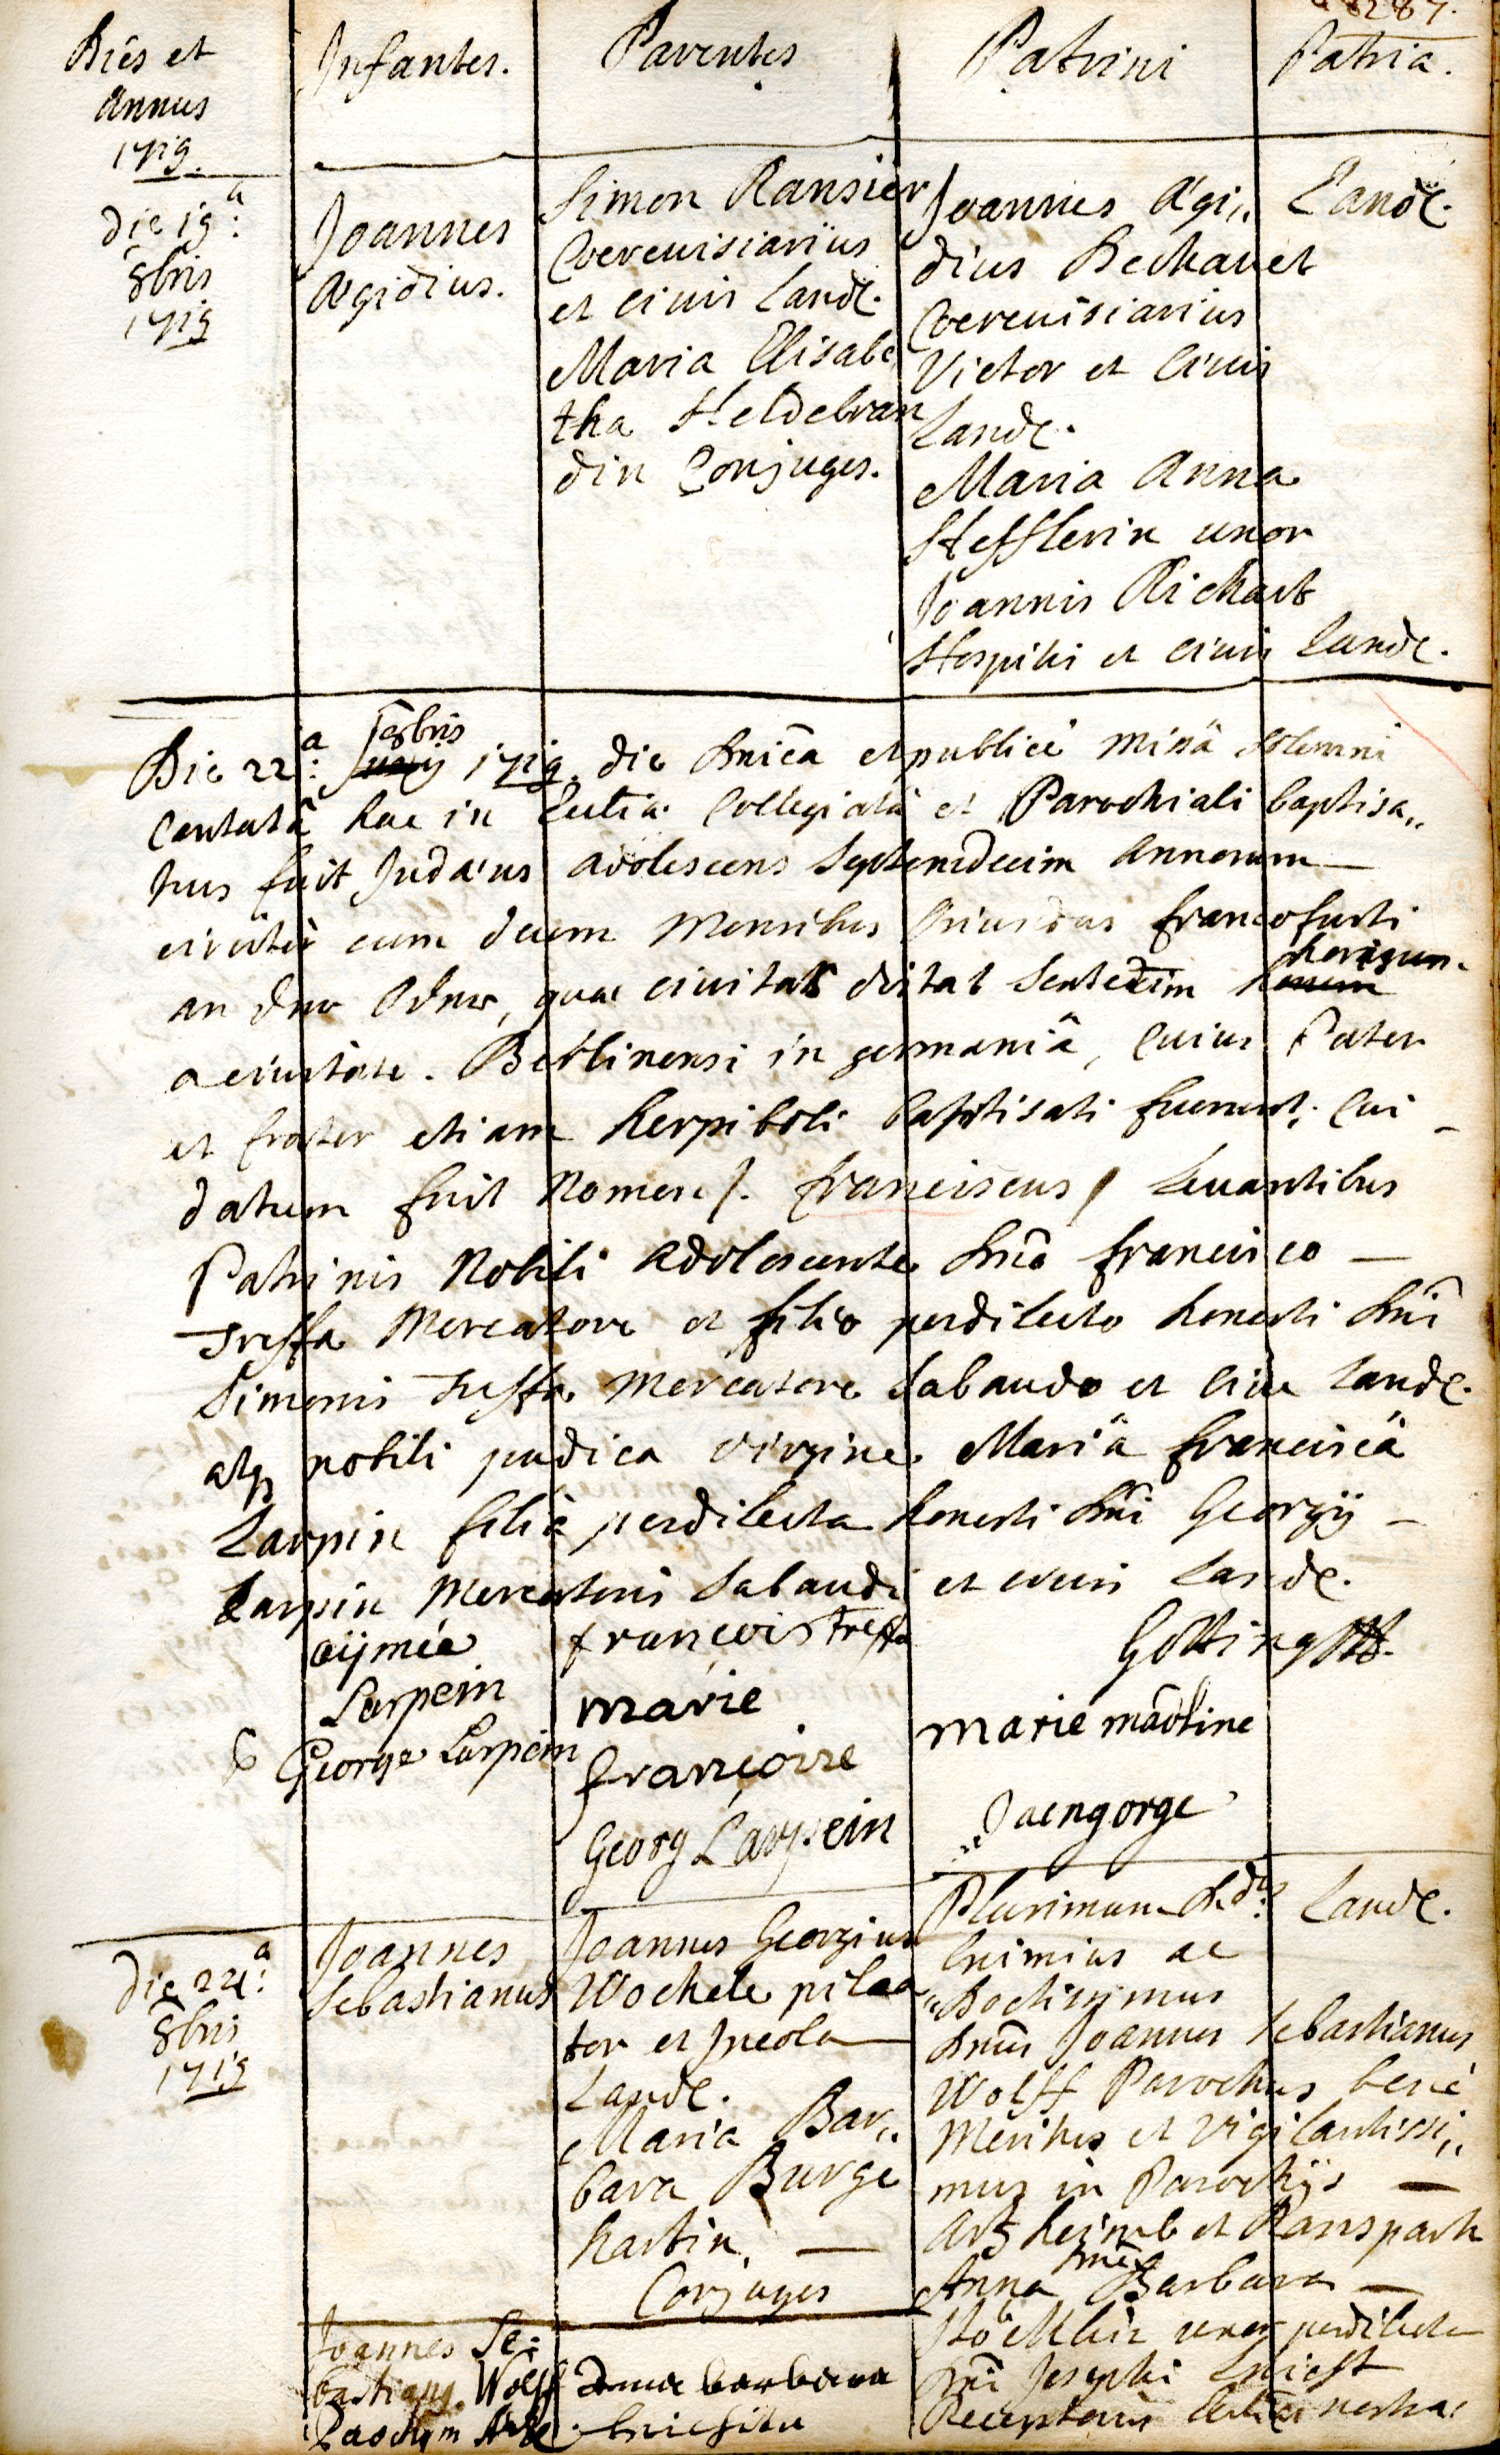 8287.
Diês et
Annus
1719.
Infantes.
Parentes
Patrini
Patria.
die 19:a
8bris
1719
Joannes
Ægidius.
Simon Ransier
Coereuisiariùs
et ciuis Landæ.
Maria Elisabe
tha Heldebran
din Conjuges.
Joannes Ægi,,
dius Beckauet
Coereuisiarius
Victor et Ciuis
Landæ.
Maria Anna
Hefflerin uxor
Joannis Rickart
Hospitis et ciuis Landæ.
Landæ.
Die 22:a 8bris 1719. die Dnicâ et publicè missâ solemni
Cantatâ hac in Collegiatâ et Parochiali baptisa,,
tus fuit Judæus adolescens Septemdecim Annorum
circiter cum decem Mensibus Francofurti
an der Oder, quæ ciuitas distat
a ciuitate. Berlinensi in germaniâ, Cuius Pater
et frater etiam herpiboli baptisati fuerunt. Cui
datum fuit Nomen /. Franciscus / Leuantibus
Patrinis Nobili adolescente Dnô Francisco
Treffa Mercatore et filio perdilecto honesti Dnî
Simonis Treffa Mercatore Sabaudo et Ciue Landæ.
atq nobili pudica virgine. Mariâ Franciscâ
Larpin filiâ perdilecta honesti Dnî Georgÿ
Larpin Mercatoris Sabaudi et ciuis Landæ.
aÿmée
Larpein
George Larpein
francois treffa
marie
françoise
Georg Larpein
Gotting
marie martine
Jaengorge
die 22:a
8bris
1719
Joannes
Sebastianus
Joannes Georgius
Wockele pilea
tor et Incola
Landæ.
Maria Bar,,
bara Burge
hartin,
Conjuges
Plurimum Rdus:
Eximius ac
Doctissimus
Dnûs Joannes Sebastianus
Wolff Parochus benè
Meritus et vigilantissi,,
mus in Parochÿs
Artzheimb et Ranspach
Anna Barbara
uxor perdilecta
Dnî Josephi
Receptoris nostræ
Landæ.
Joannes Se:
bastianus Wolff
barbara